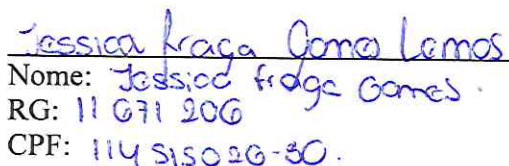 Jessica Fraga Gomes Lemos
Nome: Jessica fraga Gomes.
RG: 11 671 206
CPF: 114 515 026-30.